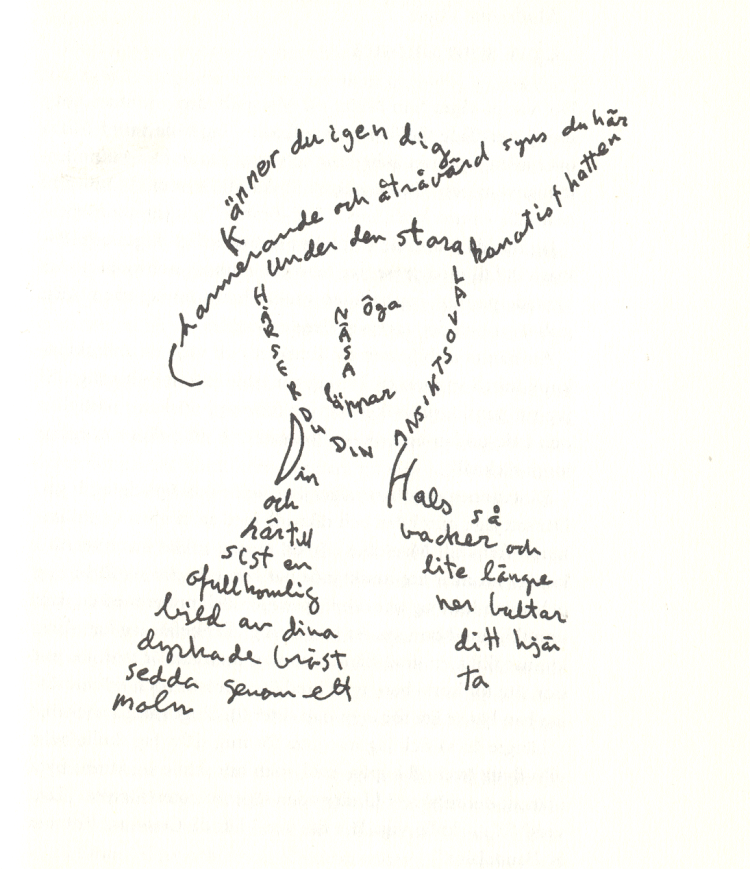 Känner du igen dig
Charmerande och åtråvärd syns du här
under den stora kanotisthatten
HÄR SER DU DIN ANSIKTSOVAL
öga
NÄSA
läppar
Din
och
härtill
sist en
ofullkomlig
bild av dina
dyrkade bröst
sedda genom ett
moln
Hals så
vacker och
lite längre
ner bultar
ditt hjär
ta